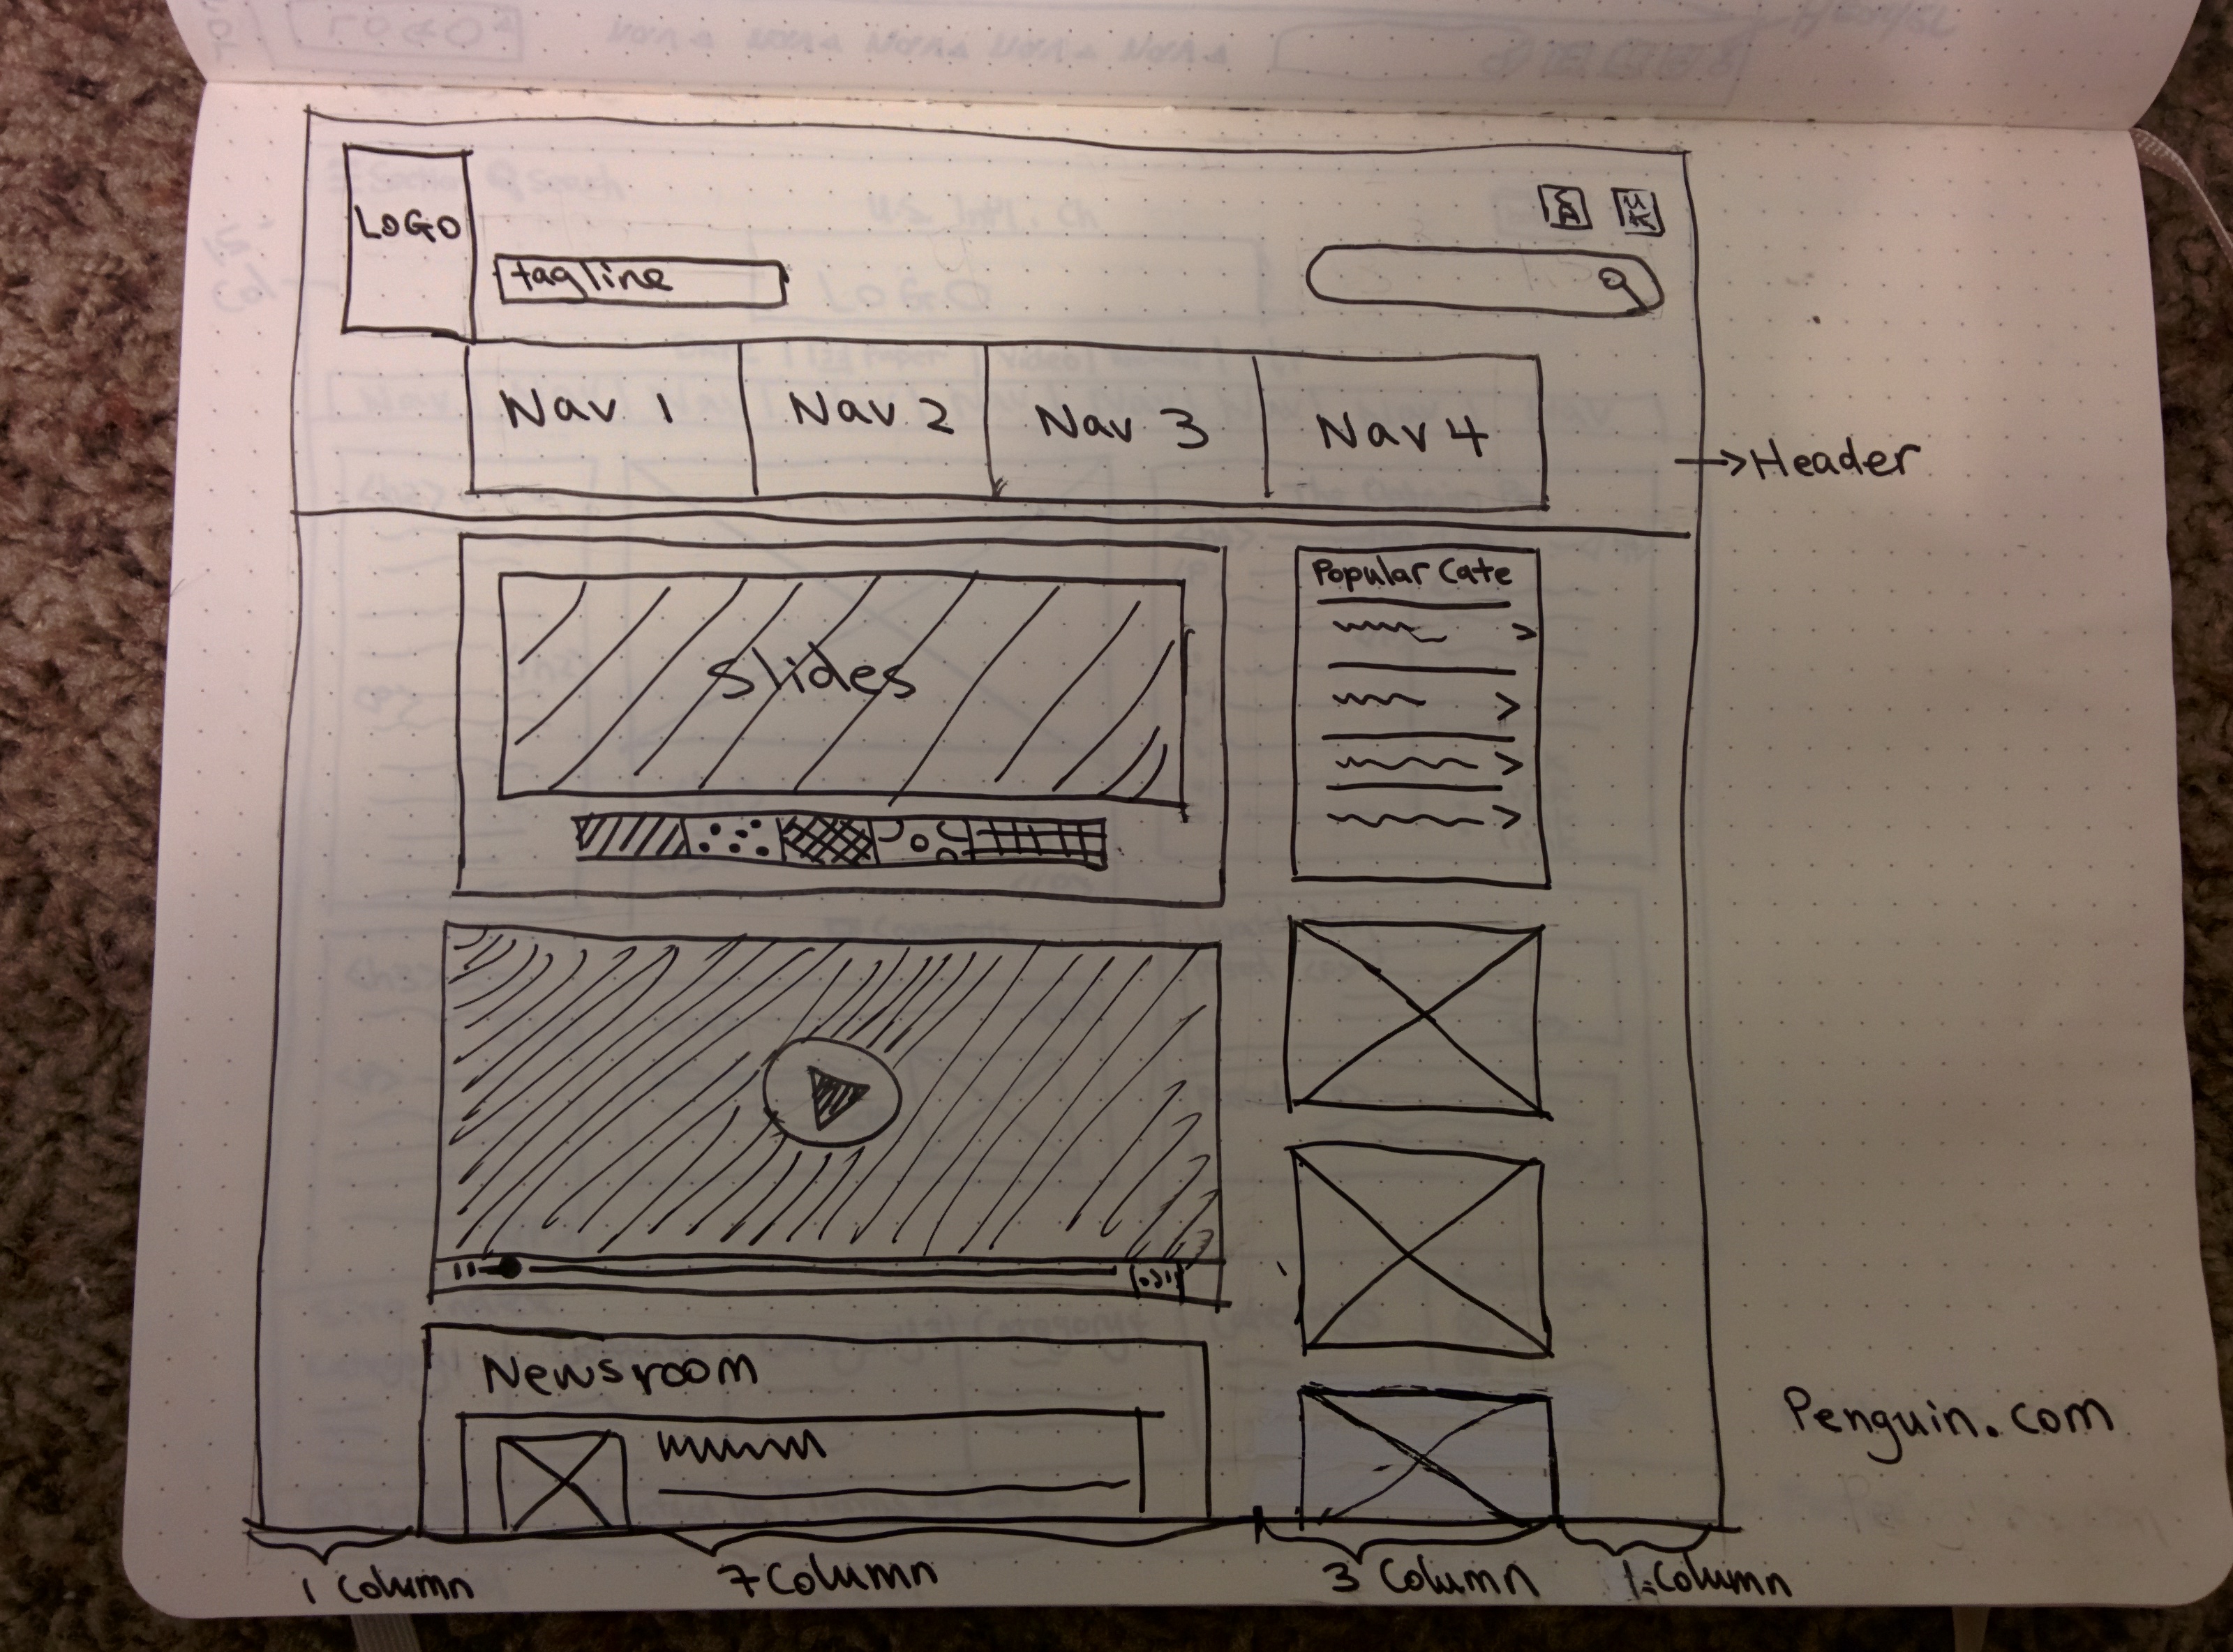 LOGO
SA
UK
tagline
Nav 1 Nav 2 Nav 3 Nav 4
Header
Popular Cate
Slides
Newsroom
Penguin.com
1 Column 7 Column 3 Column 1 Column